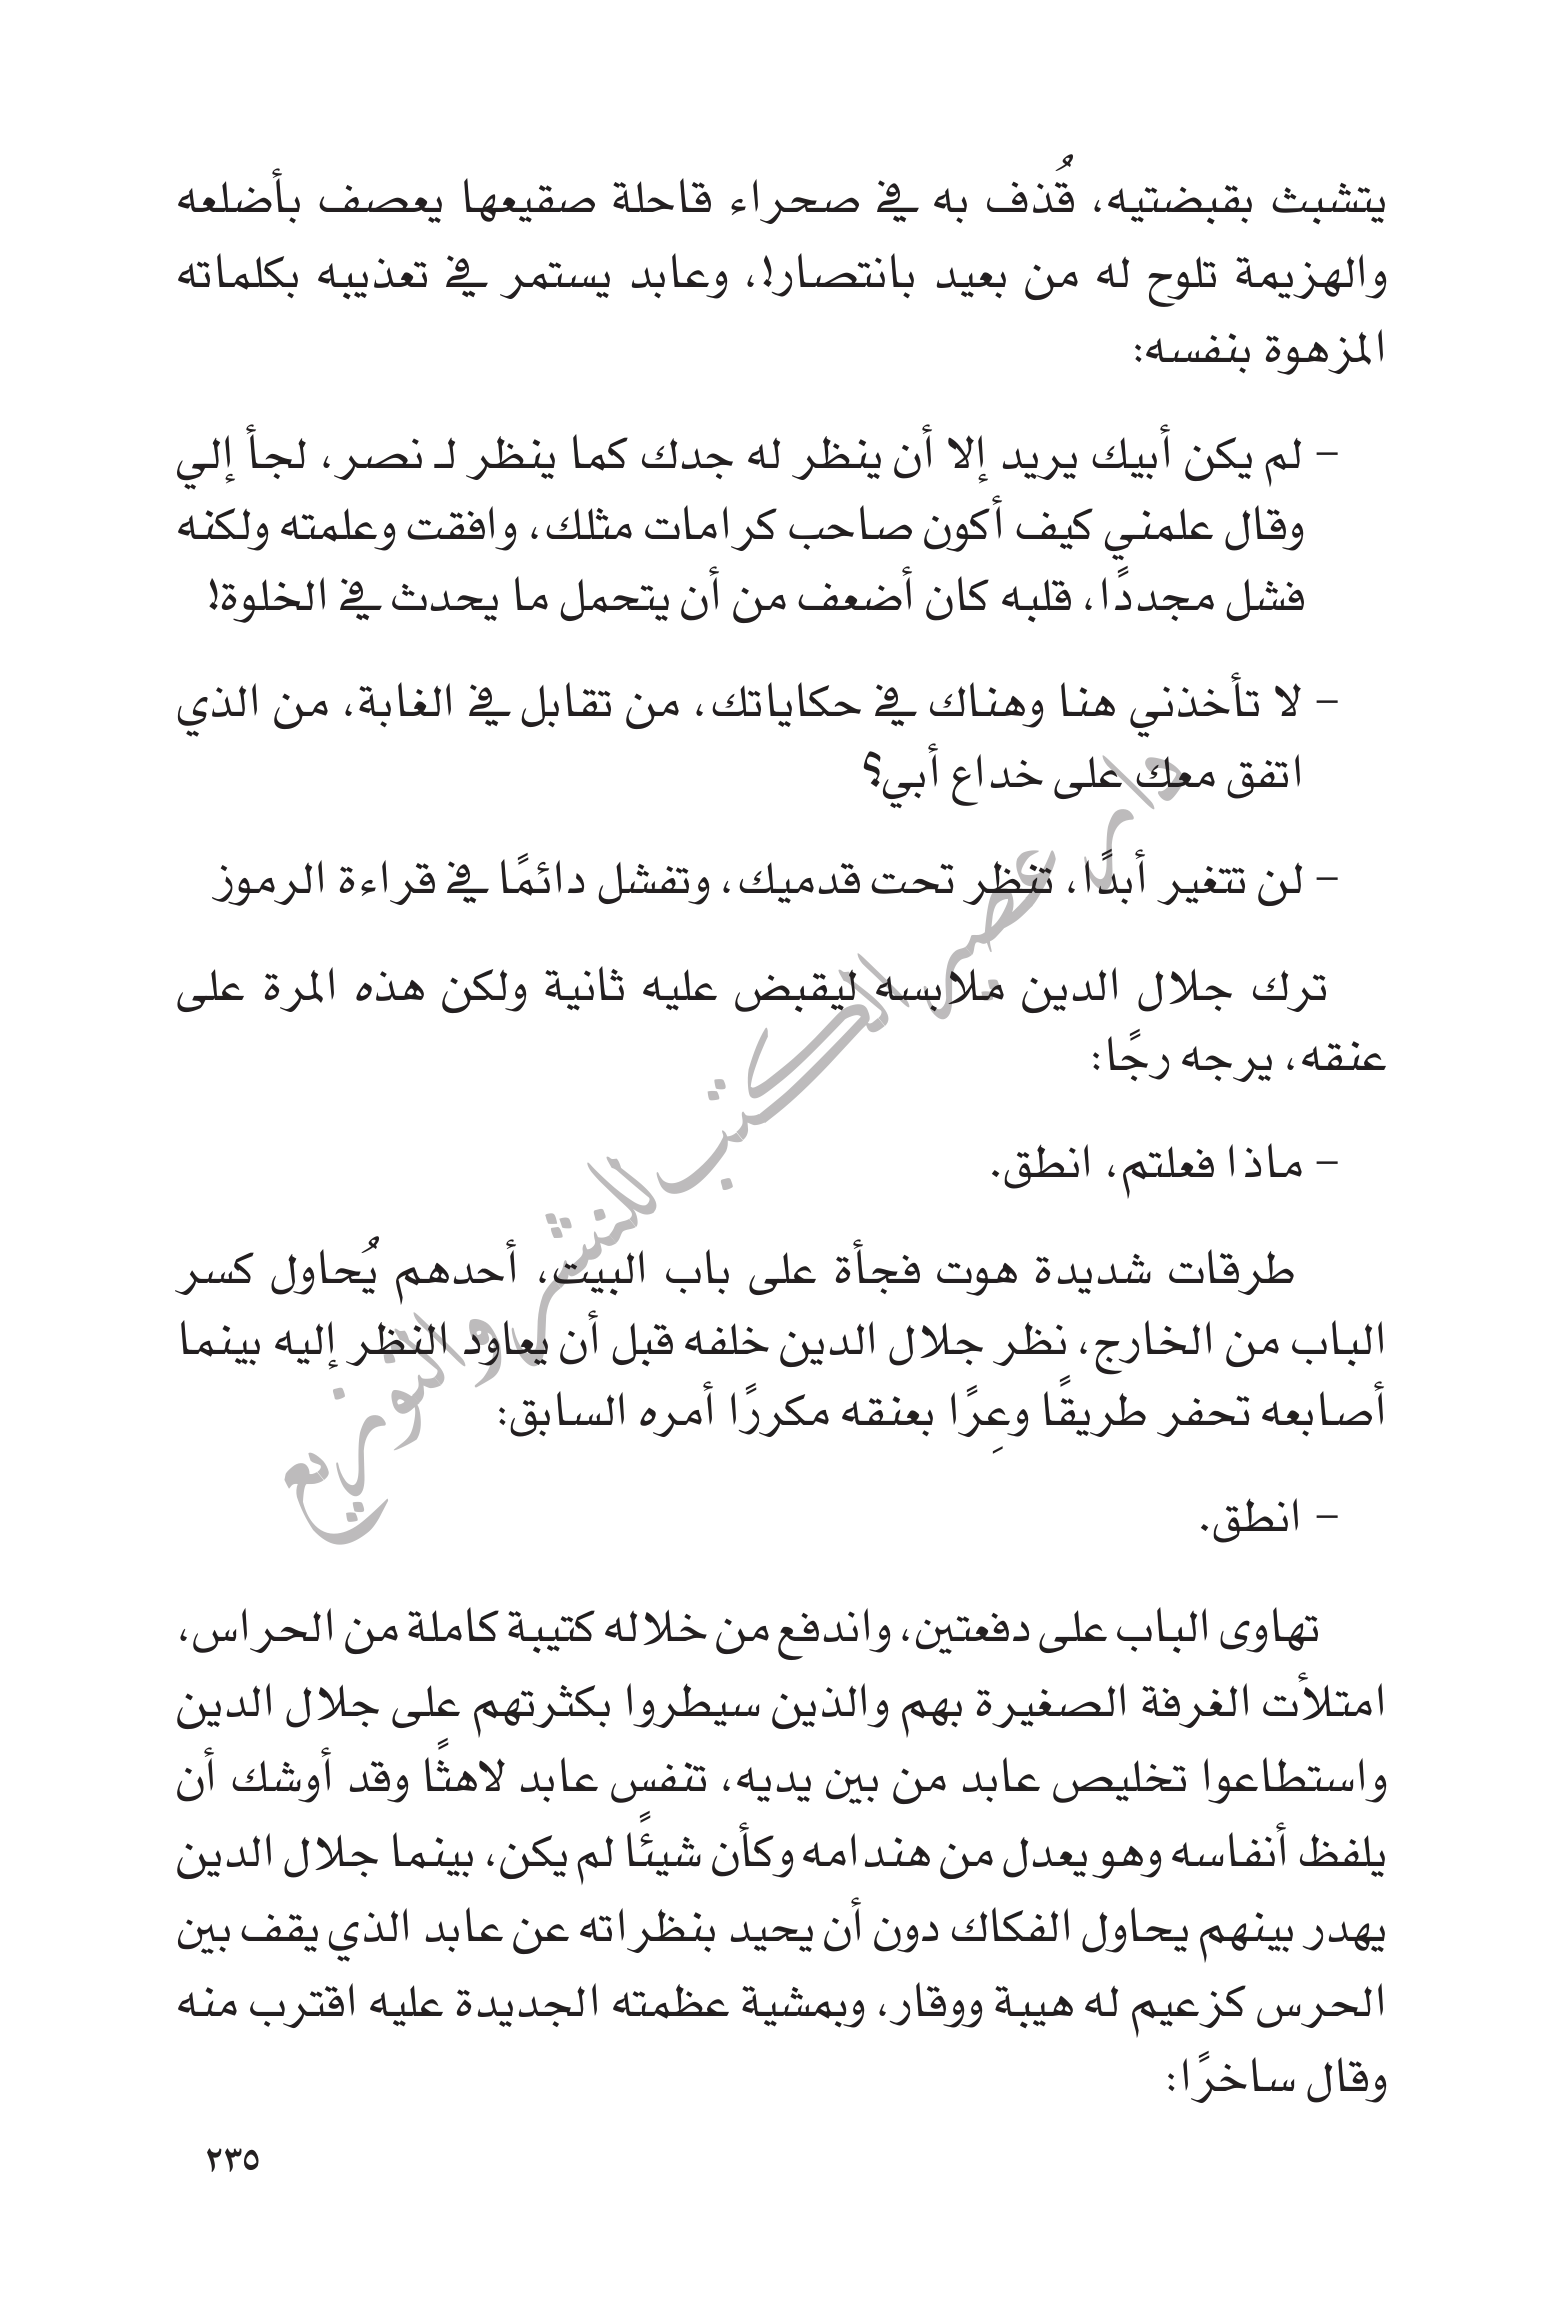 يتشبث بقبضتيه، قُذف به في صحراء قاحلة صقيعها يعصف بأضلعه
والهزيمة تلوح له من بعيد بانتصار!، وعابد يستمر في تعذيبه بكلماته
المزهوة بنفسه:
– لم يكن أبيك يريد إلا أن ينظر له جدك كما ينظر لـ نصر، لجأ إلي
وقال علمني كيف أكون صاحب كرامات مثلك، وافقت وعلمته ولكنه
فشل مجددًا، قلبه كان أضعف من أن يتحمل ما يحدث في الخلوة!
– لا تأخذني هنا وهناك في حكاياتك، من تقابل في الغابة، من الذي
اتفق معك على خداع أبي؟
– لن تتغير أبدًا، تنظر تحت قدميك، وتفشل دائمًا في قراءة الرموز
ترك جلال الدين ملابسه ليقبض عليه ثانية ولكن هذه المرة على
عنقه، يرجه رجًا:
– ماذا فعلتم، انطق.
طرقات شديدة هوت فجأة على باب البيت، أحدهم يُحاول كسر
الباب من الخارج، نظر جلال الدين خلفه قبل أن يعاود النظر إليه بينما
أصابعه تحفر طريقًا وعِرًا بعنقه مكررًا أمره السابق:
– انطق.
تهاوى الباب على دفعتين، واندفع من خلاله كتيبة كاملة من الحراس،
امتلأت الغرفة الصغيرة بهم والذين سيطروا بكثرتهم على جلال الدين
واستطاعوا تخليص عابد من بين يديه، تنفس عابد لاهثًا وقد أوشك أن
يلفظ أنفاسه وهو يعدل من هندامه وكأن شيئًا لم يكن، بينما جلال الدين
يهدر بينهم يحاول الفكاك دون أن يحيد بنظراته عن عابد الذي يقف بين
الحرس كزعيم له هيبة ووقار، وبمشية عظمته الجديدة عليه اقترب منه
وقال ساخرًا:
٢٣٥
دار عصير الكتب للنشر والتوزيع